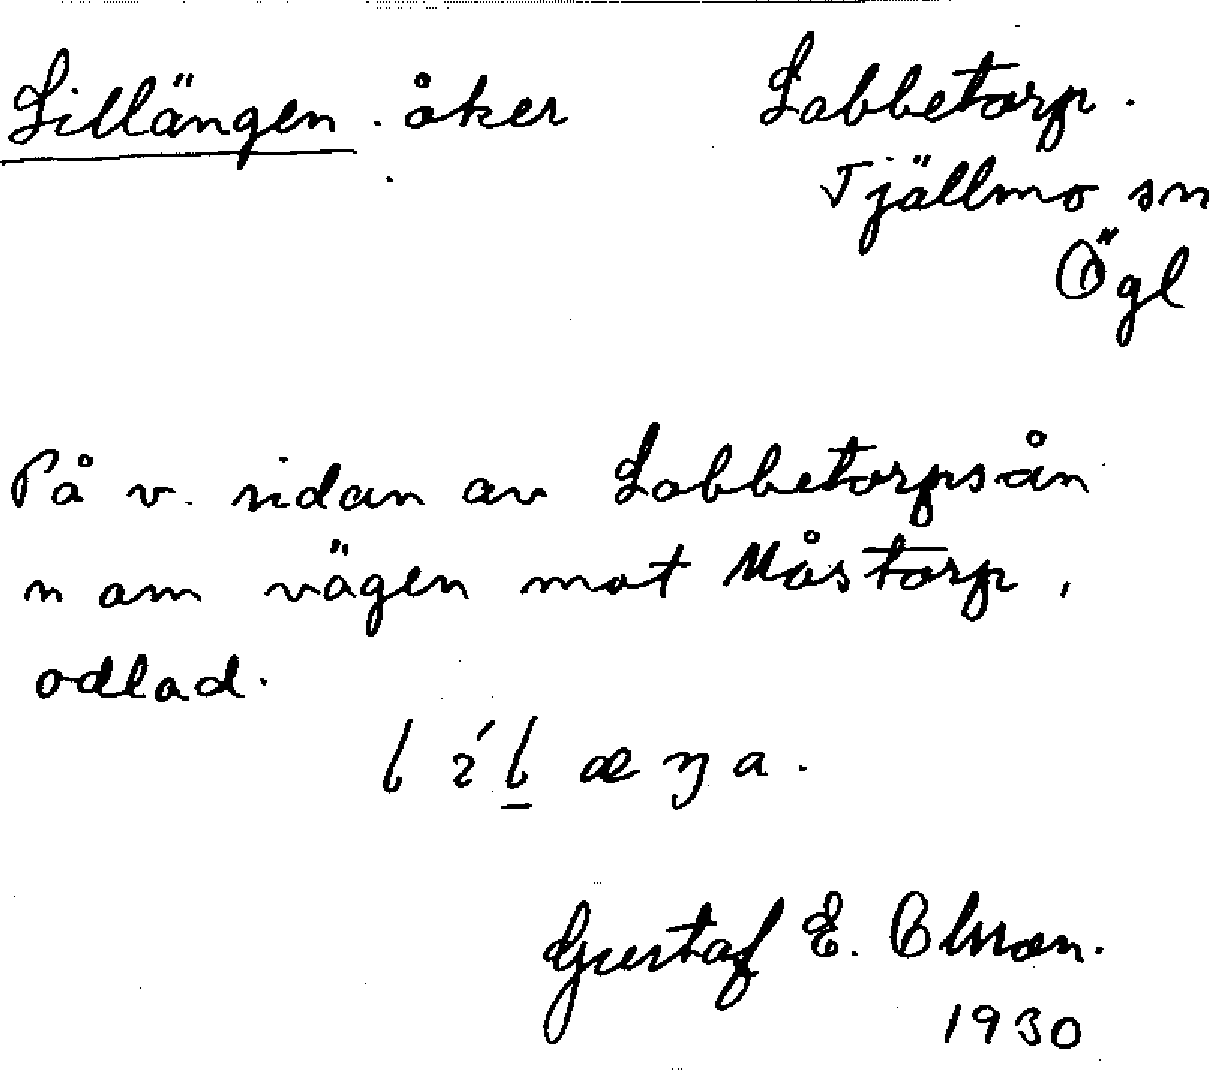 Lillängen. åker
Labbetorp.
Tjällmo sn
Ögl
På v. sidan av Labbetorpsån
n om vägen mot Måstorp,
odlad.
Gustaf E. Olsson.
1930